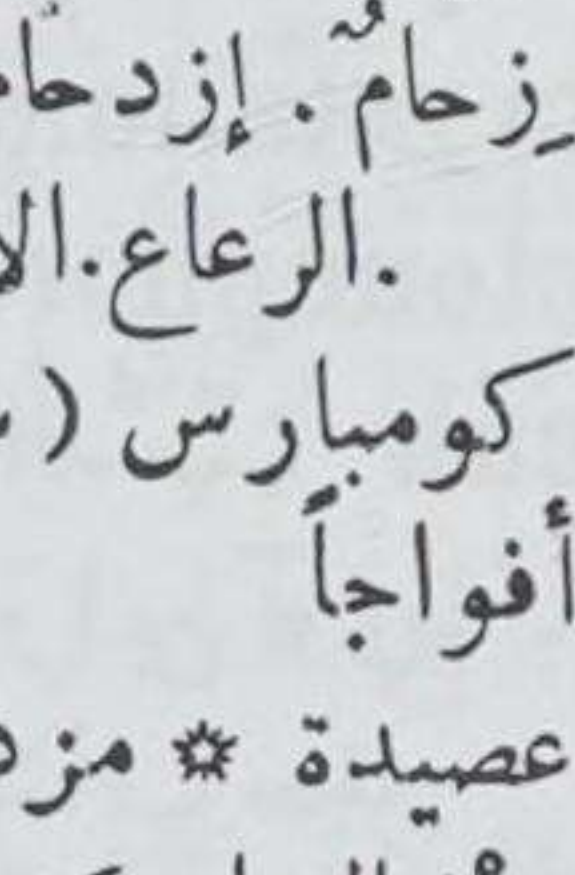 زِحامٌ . إزدحا
.الرعاع.الا
كومبارس (
أفواجاً
عصيدة ☼ مزد